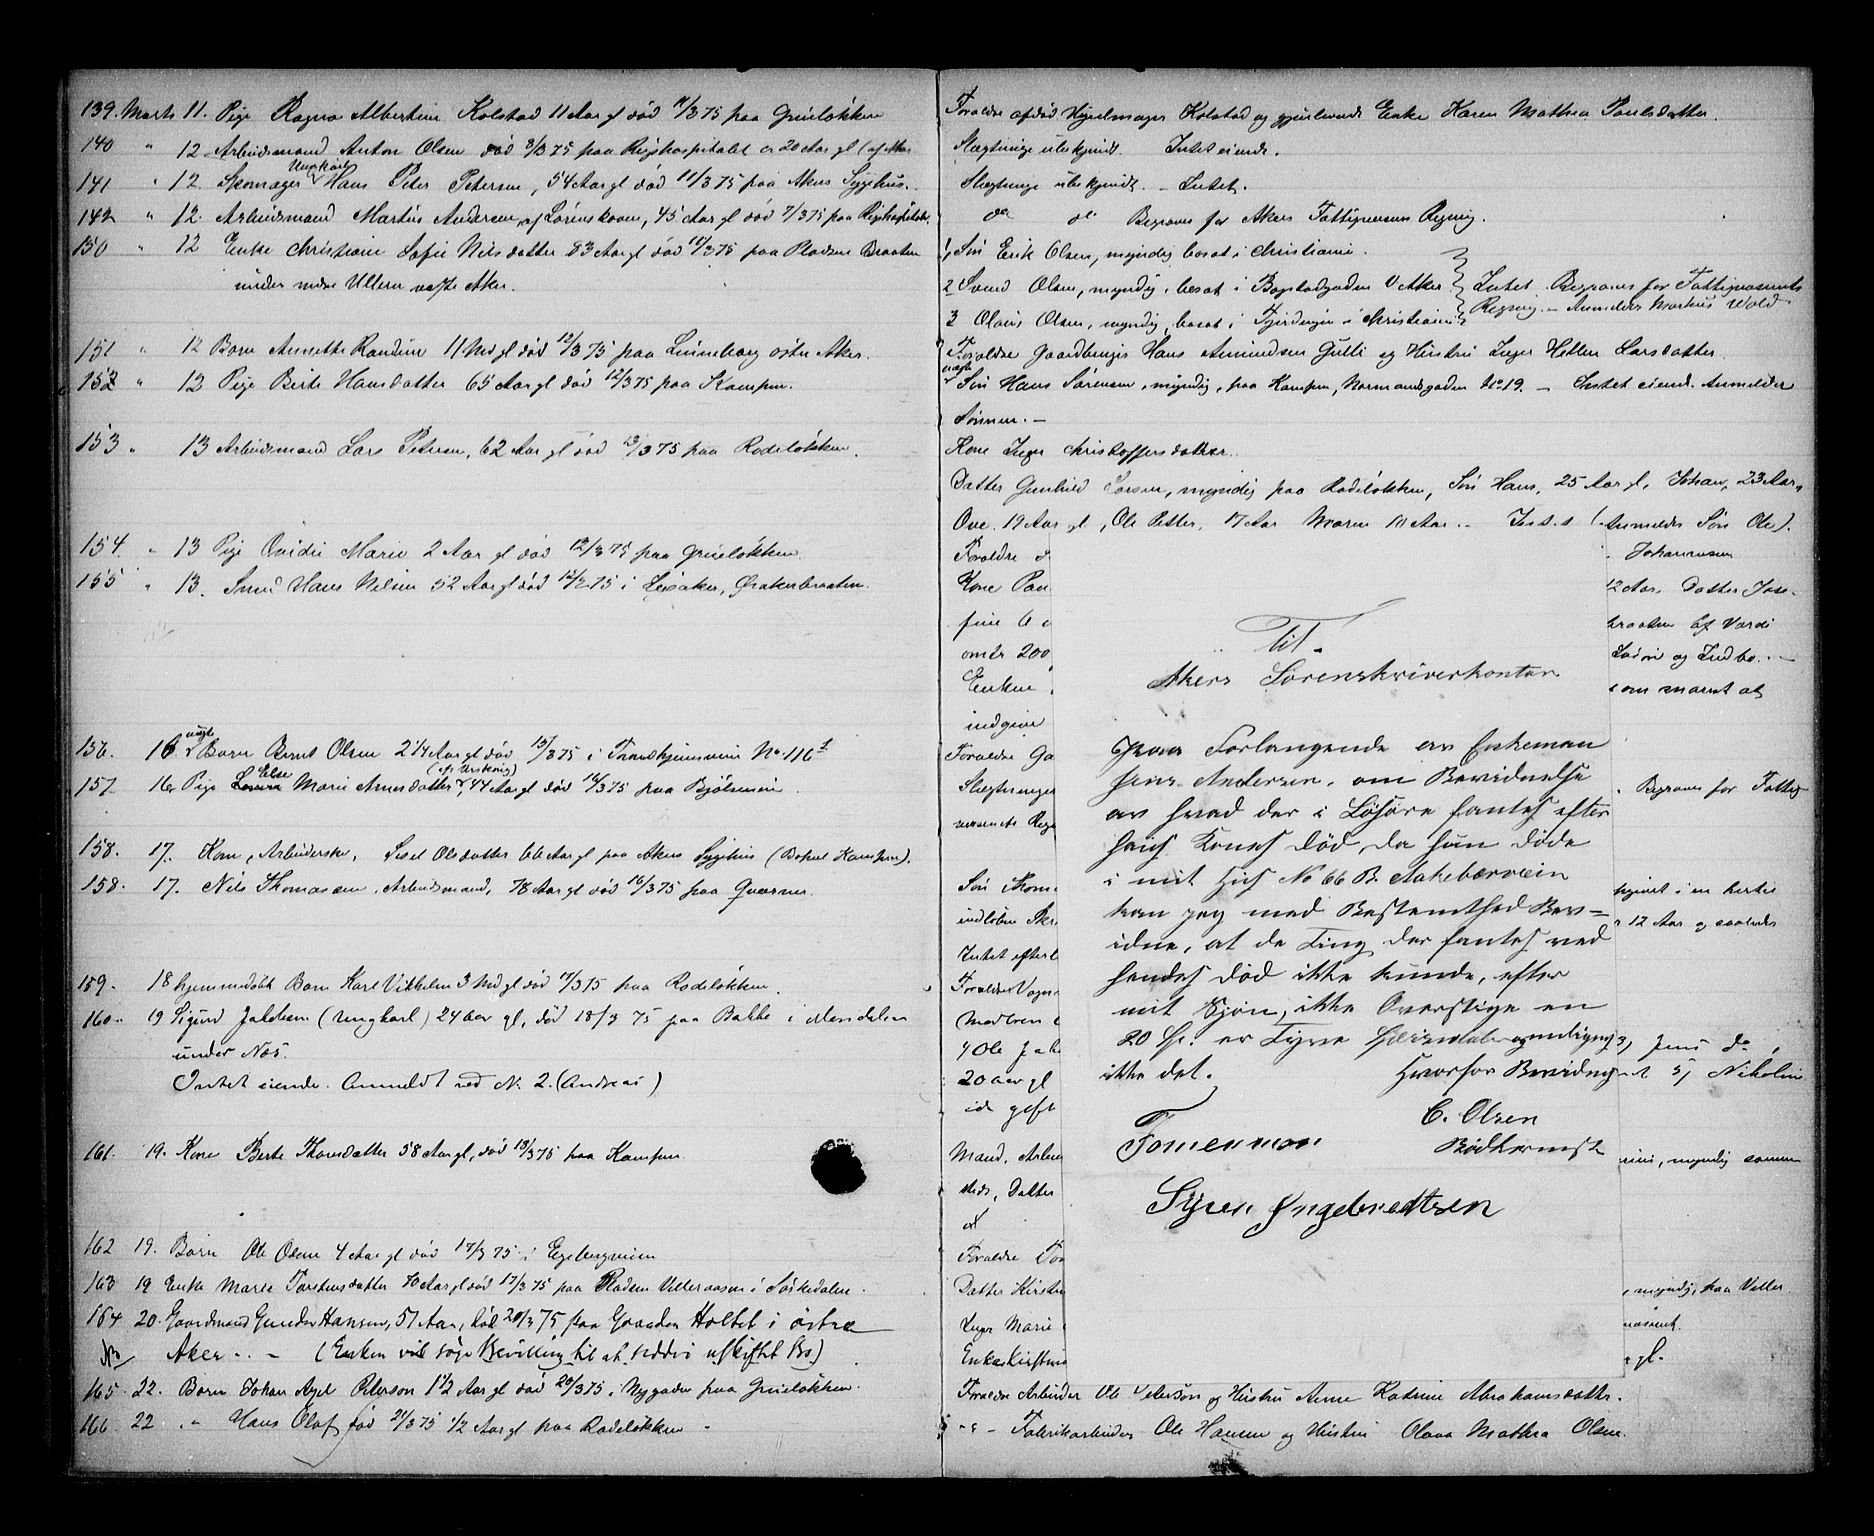 139. Marts 11. Pige Ragna Albertine Kolstad 11 Aar gl død 11/3 75 paa Grünløkken
140 " 12 Arbeidsmand Anton Olsen død 8/3 75 paa Rigshospitalet ca 20 Aar gl (af Aker
Ungkarl
141 " 12. Skomager Hans Peter Petersen, 54 Aar gl død 11/3 75 paa Akers Sygehus.
142 " 12. Arbeidsmand Martin Andersen, af Lørenskoven, 45 Aar gl død 7/3 75 paa Rigshospitalet.
150 " 12 Enke Christiane Sofie Nilsdatter 83 Aar gl død 10/3 75 paa Pladsen Braaten
under nedre Ullern vestre Aker.
151 " 12 Barn Annette Randine 11 Md gl død 12/3 75 paa Linneberg østre Aker.
152 " 12 Pige Berte Hansdatter 65 Aar gl død 12/3 75 paa Kampen.
153 " 13 Arbeidsmand Lars Petersen, 62 Aar gl død 13/3 75 paa Rodeløkken.
154. " 13 Pige Ovidie Marie 2 Aar gl død 12/3 75 paa Grünløkken
155 " 13. Smed Hans Nilsen 52 Aar gl død 12/2 75 i Lysaker, Ørakerbraaten.
156. 16. uægte Barn Bernt Olsen 2 1/4 Aar gl død 15/3 75 i Trondhjemsveien No. 116
Else (af Urskoug)
157 16 Pige Marie Arnesdatter, 44 Aar gl død 14/3 75 paa Bjølsenvei
158. 17. Kone, Arbeiderske, Sissel Olsdatter 66 Aar gl paa Akers Sygehus (Bopæl Kampen).
158. 17. Nils Thomassen, Arbeidsmand, 78 Aar gl død 16/3 75 paa Qværner.
159. 18 hjemmedøbt Barn Karl Vilhelm 3 Md gl død 17/3 75 paa Rodeløkken
160. 19 Sigurd Jakobsen (ungkarl) 24 aar gl, død 18/3 75 paa Bakke i Maridalen
under Næs.
Intet eiende. Anmeldt ved N. 2. (Andreas)
161. 19. Kone Berte Thorsdatter 58 Aar gl, død 18/3 75 paa Kampen
162 19. Barn Ole Olsen 4 Aar gl død 17/3 75 i Egebergveien
163 19 Enke Marte Torstensdatter 70 Aar gl død 17/3 75 paa Pladsen Villeraasen i Sørkedalen.
164 20. Gaardmand Gunder Hansen, 57 Aar, død 20/3 75 paa Gaarden Holtet i østre
Nb Aker. - (Enken vil søge Bevilling til at sidde i uskiftet Bo)
165. 22. Barn Johan Axel Peterson 1 1/2 Aar gl død 20/3 75 i Nygaden paa Grünløkken
166. 22 " Hans Olaf død 21/3 75 1/2 Aar gl paa Rodeløkken
Forældre afdød Hjulmager Kolstad og gjenlevende Enke Karen Mathea Paulsdatter.
Slægtninge ubekjendt. Intet eiende.
Slægtninge ubekjendt. - Intet.
do do Begraves for Akers Fattigvæsens Regning.
1, Søn Erik Olsen, myndig bosat i Christiania.
2 Svend Olsen, myndig, bosat i Bogstadgaden V. Aker } Intet. Begraves for Fattigvæsenets
3 Olaus Olsen, myndig, bosat i Fjerdingen i Christiania } Regning. - Anmelder Markus Wold
Forældre Gaardbruger Hans Amundsen Gulli og Hustru Inger Hellene Larsdatter
uægte
Søn Hans Sørensen, myndig, paa Kampen, Normandsgaden No. 19. - Intet eiende. Anmelder
Sønnen. -
Kone Inger Christoffersdatter.
Datter Gunhild Larsen, myndig paa Rodeløkken, Søn Hans, 25 Aar gl, Johan, 23 Aar,
Ove. 19 Aar gl, Ole Petter, 17 Aar Maren 10 Aar. - Intet (Anmelder Søn Ole).
Forældre
Johannesen
Kone Pau
12 Aar. Datter Jose-
fine 6
braaten af Værdi
omtr 200
Løsøre og Indbo. -
Enken
som snarest at
indgive
Forældre Ga
Slægtninger
Begraves for Fattig
væsenets Reg
Søn Thom
hjemt i en
indløben Skr
12 Aar og saaledes
Intet efterl
Forældre Vogn
Modren
4 Ole Jak
3) Jens do
20 aar gl
5) Nikolin
ide gift
Mand, Arbei
myndig samme
steds, Datter
Forældre To
Datter Kirstin
, myndig, paa Viller
Inger Marie
Enke Kirstine
gl.
Forældre Arbeider Ole Peterson og Hustru Anne Katrine Abrahamsdatter.
" " - Fabrikarbeider Ole Hansen og Hustru Olava Mathea Olsen.
Til.
Akers Sorenskriverkontor
Paaa Forlangende av Enkeman
Jens Andersen, om Bevidnelse
av hvad der i Løsøre fantes efter
hans Kones Død, da hun døde
i mit Hus No 66 B. Aakebærveien
kan jeg med Bestemthed Bev=
idne, at de Ting der fantes ved
hendes død ikke kunde, efter
mit Skjøn, ikke Overstige en
20 Sp. er Tyve Speciedaler
ikke det. Hvorfor Bevidnes
C. Olsen
Tømermon Bødkermst
Syver Ingebredtsen